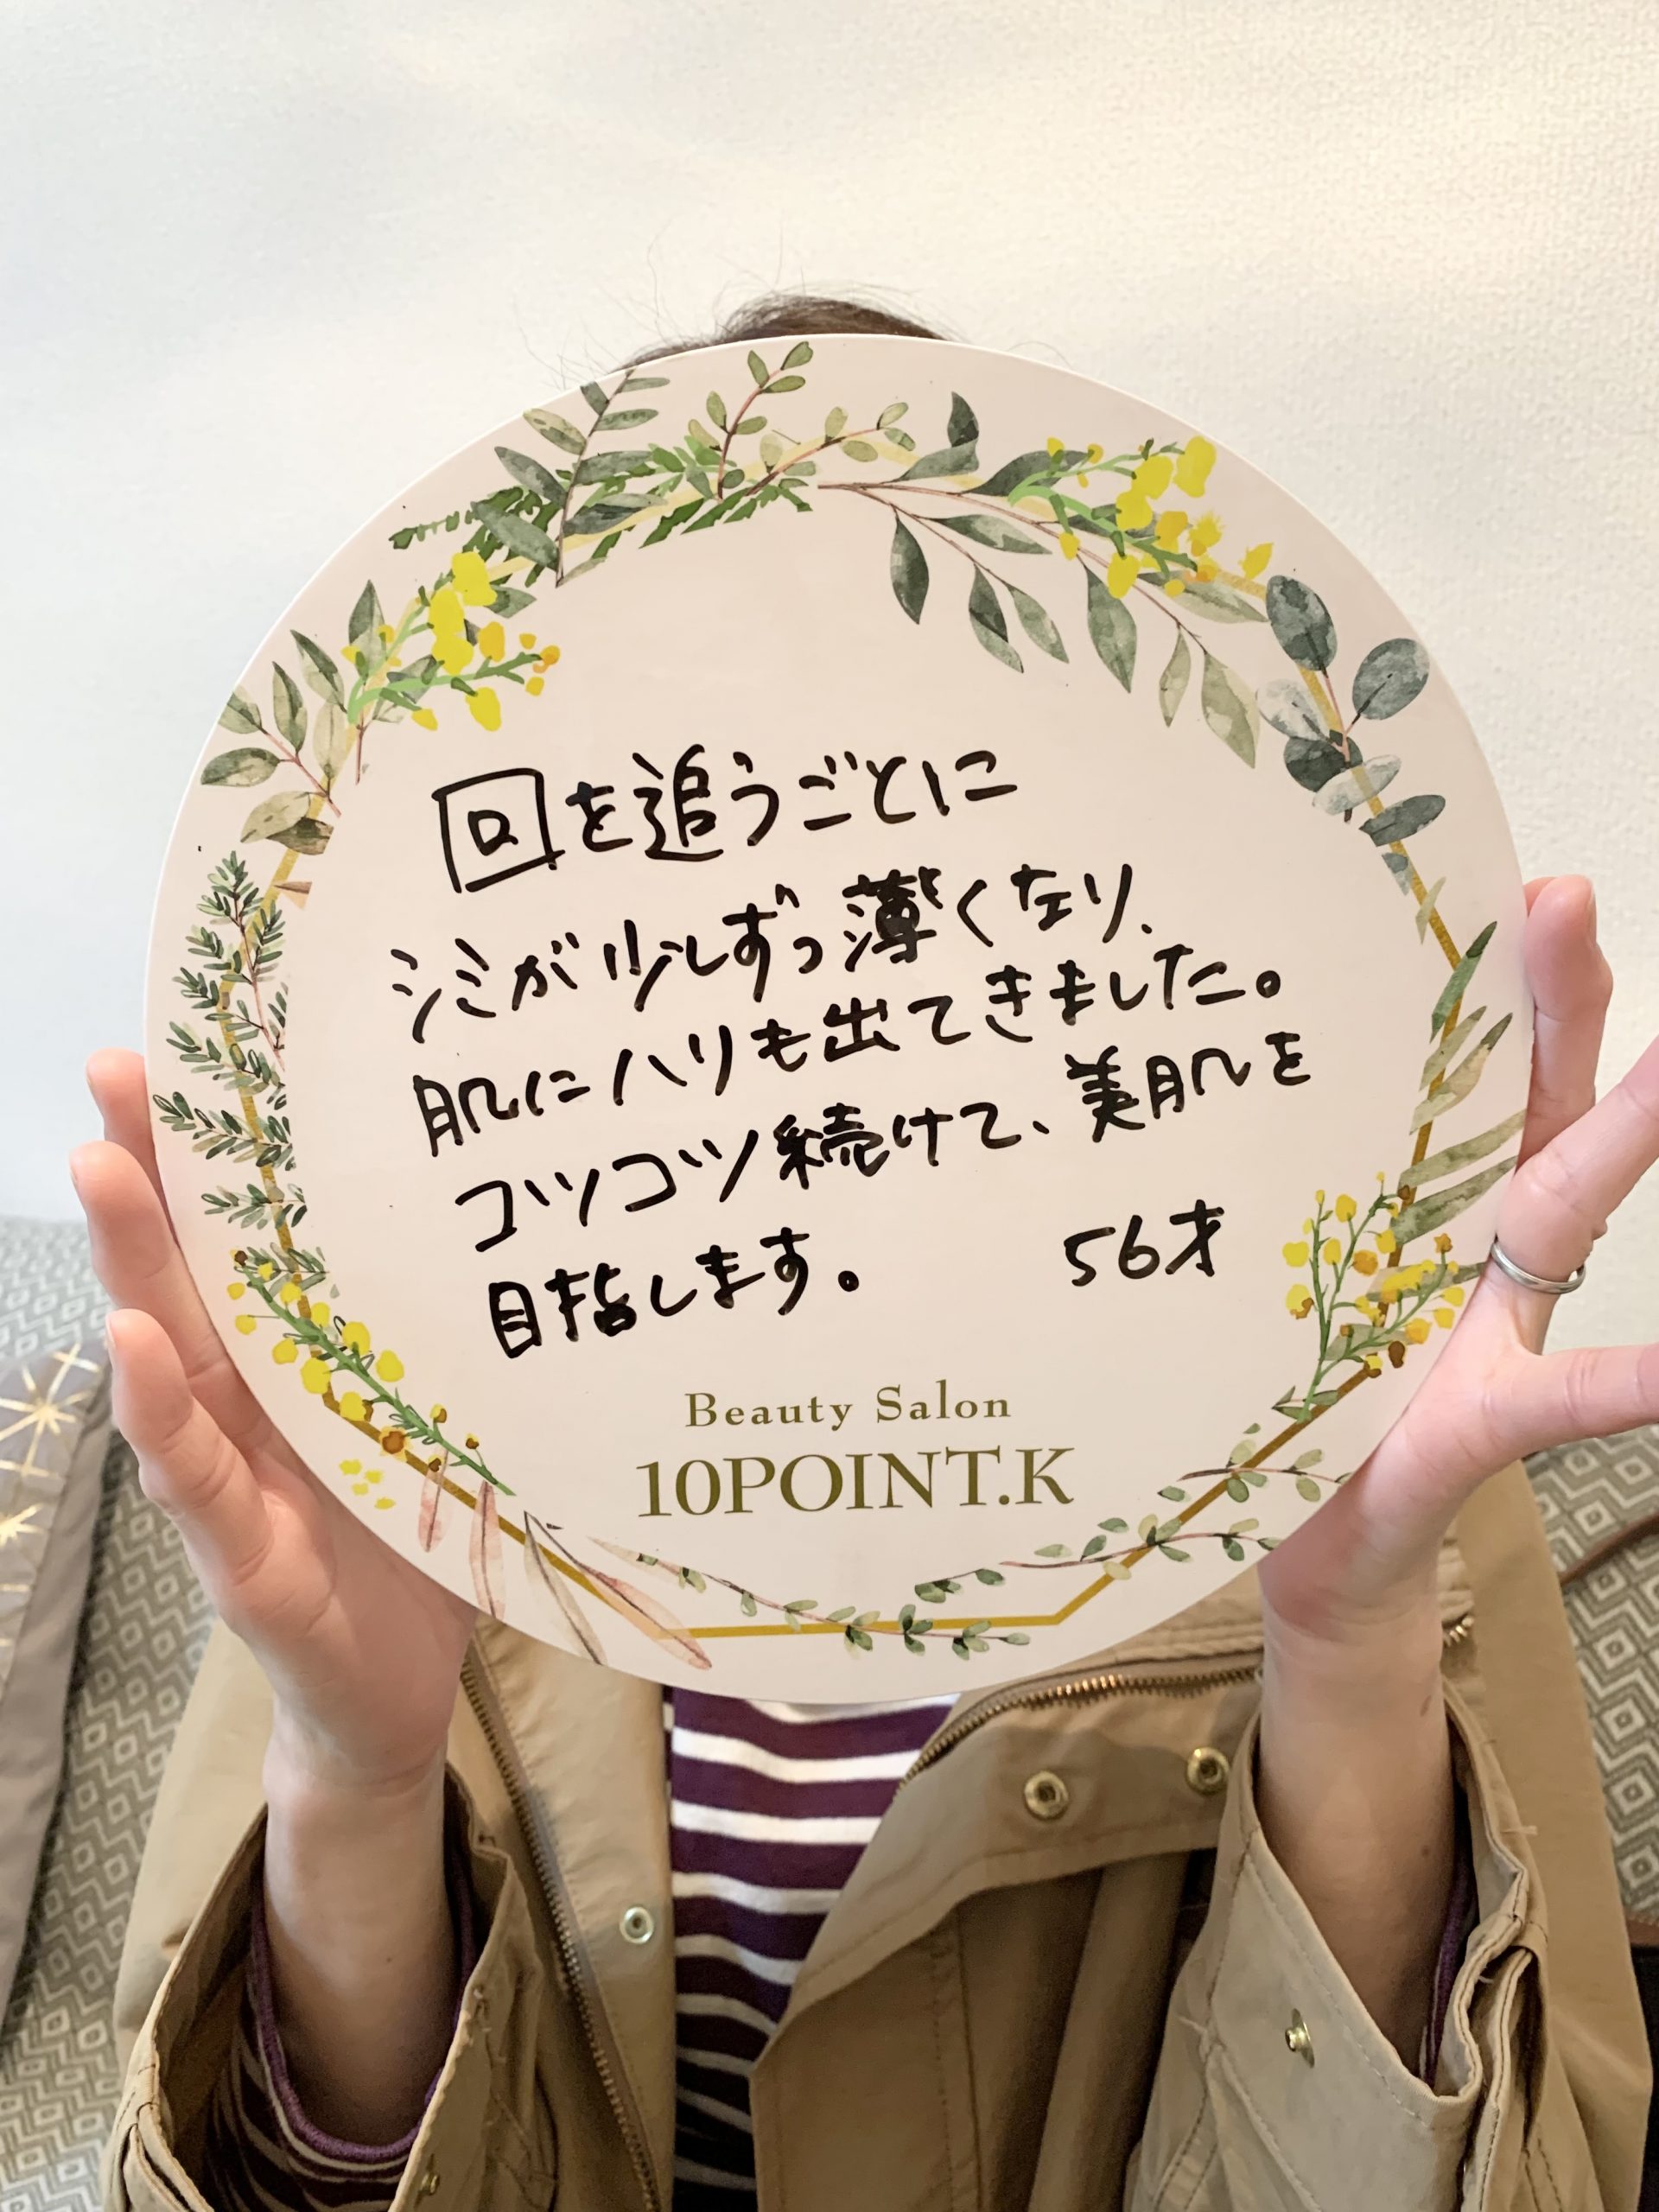 回を追うごとに
シミが少しずつ薄くなり、
肌にハリも出てきました。
コツコツ続けて、美肌を
目指します。 56才
Beauty Salon
10POINT.K